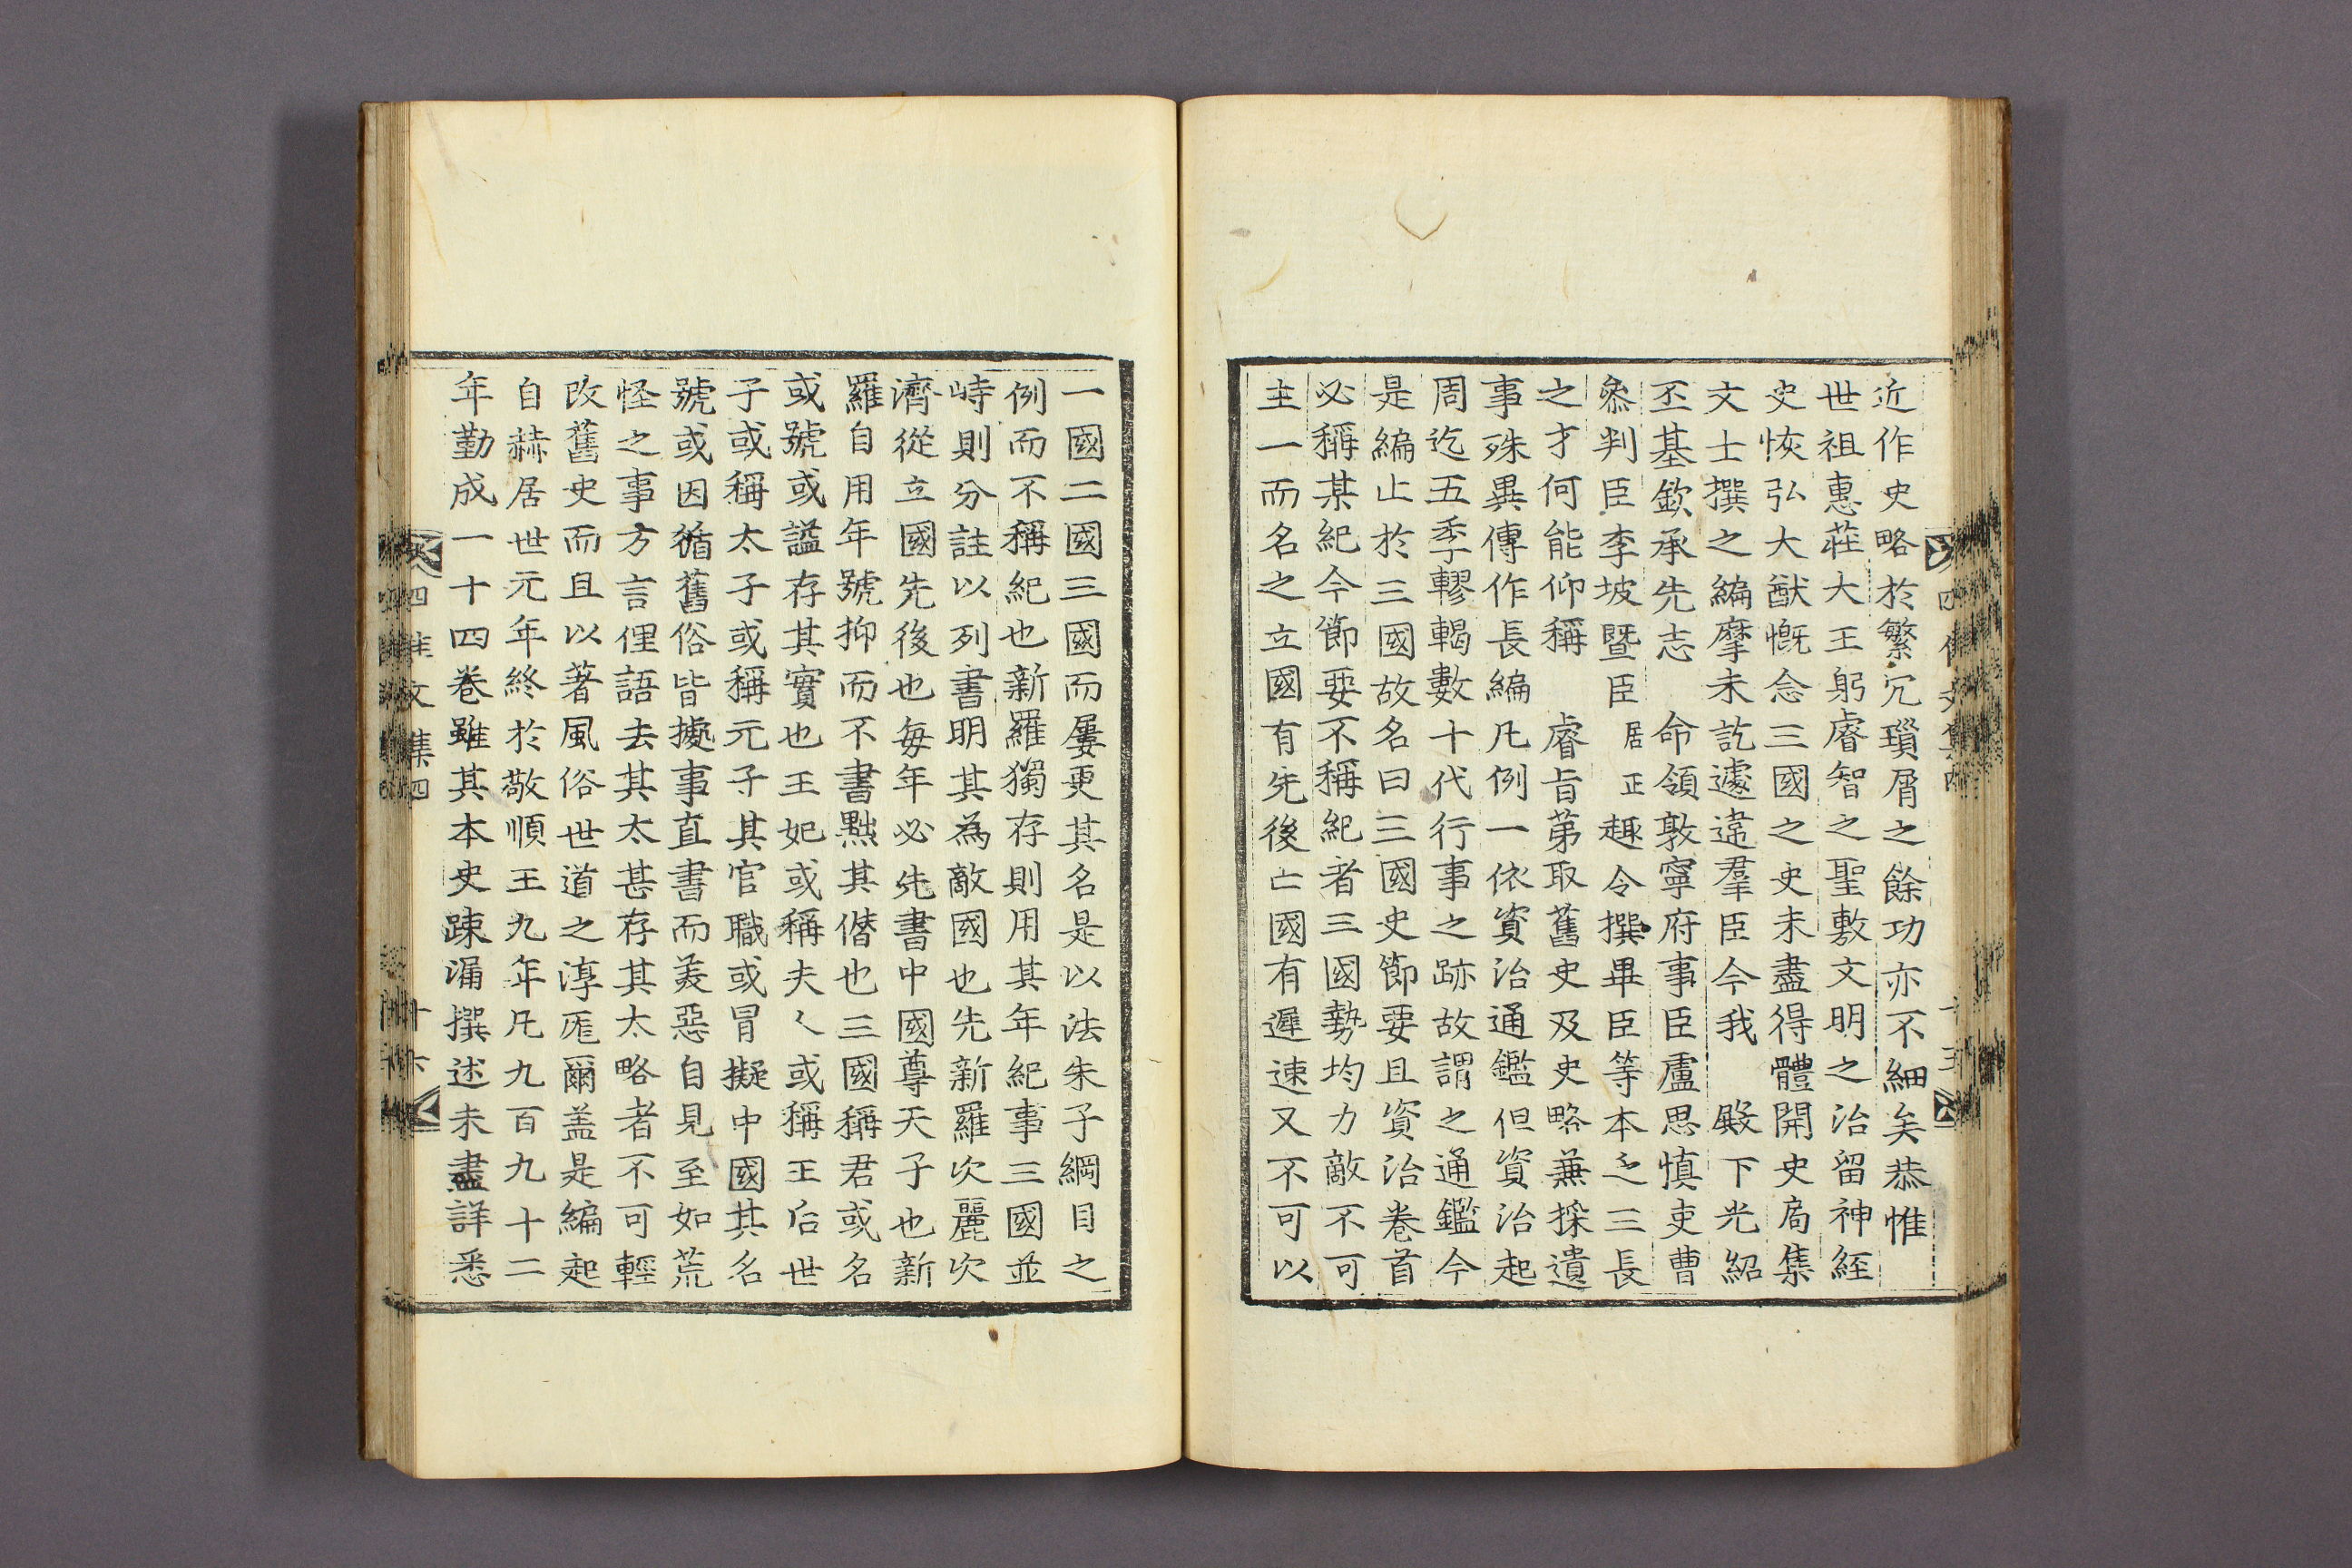 近作史略於繁冗瑣屑之餘功亦不細矣恭惟
世祖惠莊大王躬睿智之聖敷文明之治留神經
史恢弘大猷慨念三國之史未盡得體開史局集
文士撰之編摩未訖遽違羣臣今我 殿下光紹
丕基欽承先志 命領敦寧府事臣盧思愼吏曹
叅判臣李坡暨臣居正趣令撰畢臣等本乏三長
之才何能仰稱 睿旨第取舊史及史略兼採遺
事殊異傳作長編凡例一依資治通鑑但資治起
周迄五季轇轕數十代行事之跡故謂之通鑑今
是編止於三國故名曰三國史節要且資治卷首
必稱某紀今節要不稱紀者三國勢均力敵不可
主一而名之立國有先後亡國有遲速又不可以
一國二國三國而屢更其名是以法朱子綱目之
例而不稱紀也新羅獨存則用其年紀事三國並
峙則分註以列書明其為敵國也先新羅次麗次
濟從立國先後也每年必先書中國尊天子也新
羅自用年號抑而不書黜其僭也三國稱君或名
或號或謚存其實也王妃或稱夫人或稱王后世
子或稱太子或稱元子其官職或冒擬中國其名
號或因循舊俗皆㩀事直書而美惡自見至如荒
怪之事方言俚語去其太甚存其太略者不可輕
改舊史而且以著風俗世道之淳厖爾盖是編起
自赫居世元年終於敬順王九年凡九百九十二
年勤成一十四卷雖其本史踈漏撰述未盡詳悉
四佳文集四
十六